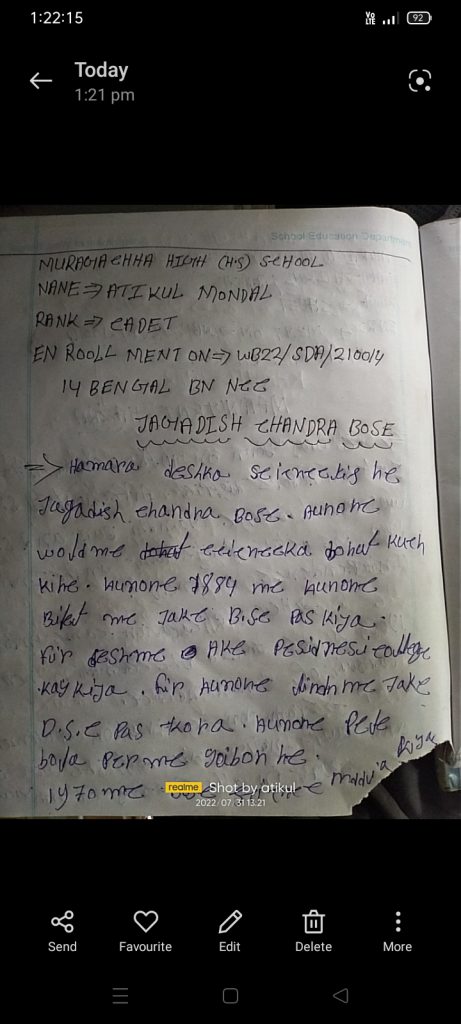 1:22:15
Vo LTE 92
Today
1:21 pm
School Education Departmen
MURAGACHHA HIGH (H.S) SCHOOL
NANE ⇒ ATIKUL MONDAL
RANK ⇒ CADET
EN ROOLL MENT ON ⇒ WB22/SDA/210014
14 BENGAL BN NCC
JAGADISH CHANDRA BOSE
⇒ Hamara deshka he
Jagadish chandra BOSE. Aunone
wold me bohut kuch
kihe. Aunone 1884 me Aunone
me Jake B.Sc Pas Kiya.
fir deshme Ake collage
kay kiya. fir Aunone me Jake
D.S.c Pas kora. Aunone Pede
boda Per me he.
1970 me
realme Shot by atikul
2022.07.31 13:21
Send Favourite Edit Delete More